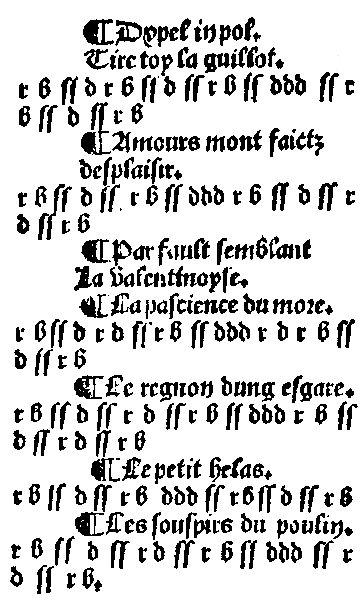 ¶ Dypel in pol.
Tire toy la guillot.
r b ss d r b ss d ss r b ss ddd ss r
b ss d ss r b
¶ Amours mont faictz
desplaisir.
r b ss d ss. r b ss ddd r b ss d ss r
d ss r b
¶ Par fault semblant
La valentinoyse.
¶ La pascience du more.
r b ss d r d ss r b ss ddd r d r b ss
d ss r b
¶ Le regnon dung esgare.
r b ss d ss r d ss r b ss ddd r b ss
d ss r d ss r b
¶ Le petit helas.
r b ss d ss r b ddd ss r b ss d ss r b
¶ Les souspirs du poulin.
r b ss d ss r d ss r b ss ddd ss r
d ss r b.